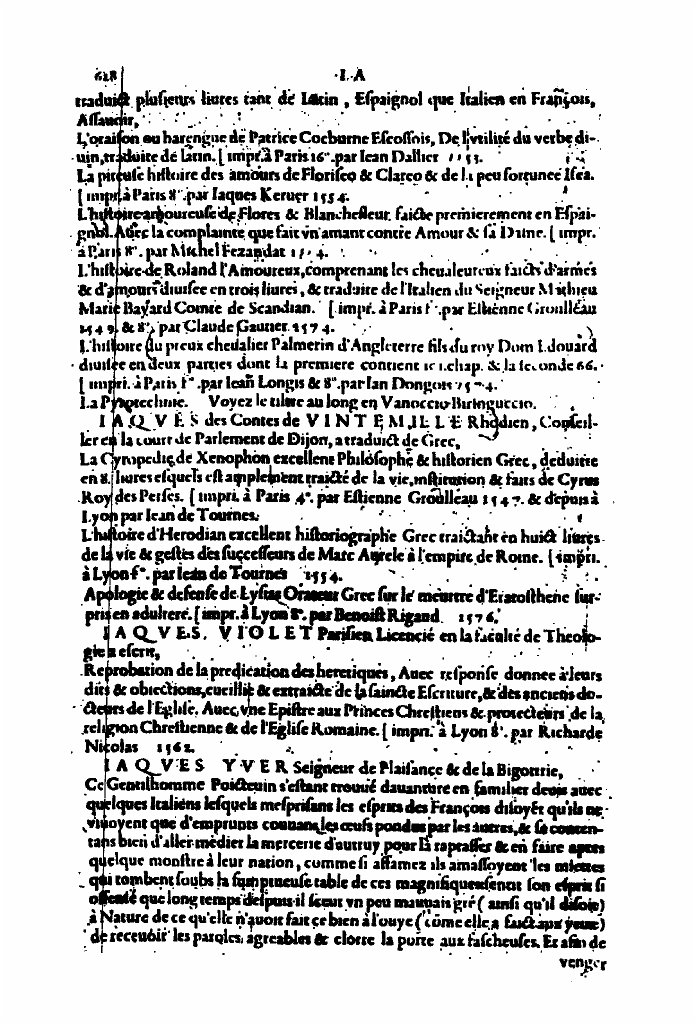 628 I A
traduict plusieurs liures tant de Latin , Espaignol que Italien en François,
Assauoir,
L'oraison ou harengue de Patrice Cocburne Escossois, De l'vtilité du verbe di-
uin, traduite de latin. [ impr. à Paris 16°. par Iean Dallier
La piteuse histoire des amours de Floriseo & Clareo & de la peu fortunee Isea.
[ impr. à Paris 8°. par Iaques Keruer 1554.
L'histoire amoureuse de Flores & Blanchefleur faicte premierement en Espai-
gnol. Auec la complainte que fait vn amant contre Amour & sa Dame. [ impr.
à Paris 8°. par Michel Fezandat
L'histoire de Roland l'Amoureux, comprenant les cheualeureux faicts d'armes
& d'amours diuisee en trois liures, & traduite de l'Italien du Seigneur Mathieu
Marie Bayard Comte de Scandian. [ impr. à Paris f°. par Estienne Groulleau
1549. & 8°. par Claude Gautier 1574.
L'histoire du preux cheualier Palmerin d'Angleterre fils du roy Dom Edouard
diuisee en deux parties dont la premiere contient chap. & la seconde 66.
[ impri. à Paris f°. par Iean Longis & 8°. par Ian Dongois
La Pyrotechnie. Voyez le tiltre au long en Vanoccio Biringuccio.
IAQVES des Contes de VINTEMILLE Rhodien, Conseil-
ler en la court de Parlement de Dijon, a traduict de Grec,
La Cyropedie de Xenophon excellent Philosophe & historien Grec, deduitte
en 8. liures esquels est amplement traicté de la vie, institution & faits de Cyrus
Roy des Perses. [ impri. à Paris 4°. par Estienne Groulleau 1547. & depuis à
Lyon par Iean de Tournes.
L'histoire d'Herodian excellent historiographe Grec traictant en huict liures
de la vie & gestes des successeurs de Marc Aurele à l'empire de Rome. [ impri.
à Lyon f°. par Iean de Tournes 1554.
Apologie & defense de Lysias Orateur Grec sur le meurtre d'Eratosthene sur-
pris en adultere. [ impr. à Lyon 8°. par Benoist Rigaud 1576.
IAQVES VIOLET Parisien Licencié en la faculté de Theolo-
gie a escrit,
Reprobation de la predication des heretiques, Auec response donnee à leurs
dits & obiections, cueillie & extraicte de la saincte Escriture, & des anciens do-
cteurs de l'Eglise. Auec vne Epistre aux Princes Chrestiens & protecteurs de la
religion Chrestienne & de l'Eglise Romaine. [ impri. à Lyon 8°. par Richarde
Nicolas 1562.
IAQVES YVER Seigneur de Plaisance & de la Bigotterie,
Ce Gentilhomme Poicteuin s'estant trouué dauanture en familier deuis auec
quelques Italiens lesquels mesprisans les esprits des François disoyēt qu'ils ne
viuoyent que d'emprunts couuans les œufs pondus par les autres, & se conten-
tans bien d'aller médier la mercerie d'autruy pour la rapetasser & en faire apres
quelque monstre à leur nation, comme si affamez ils amassoyent les miettes
qui tombent soubs la sumptueuse table de ces magnifiques sentit son esprit si
offensé que long temps despuis il sceut vn peu mauuais gré ( ainsi qu'il disoit)
à Nature de ce qu'elle n'auoit fait ce bien à l'ouye ( cōme elle a faict aux yeux)
de receuoir les paroles agreables & clorre la porte aux fascheuses. Et afin de
venger